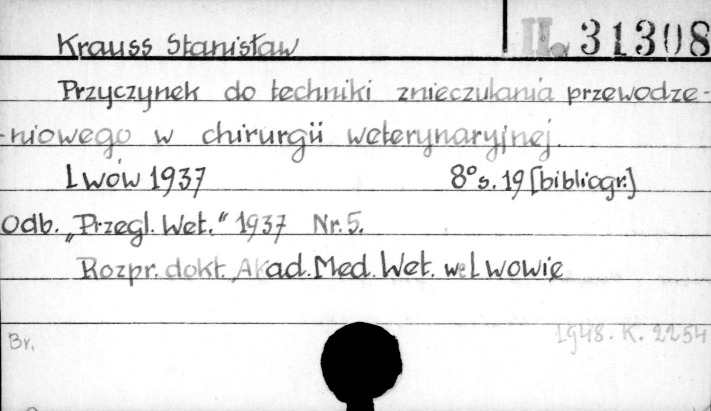 Krauss Stanisław II. 31308
Przyczynek do techniki znieczulania przewodze-
-niowego w chirurgii weterynaryjnej.
Lwów 1937 8° s. 19 [bibliogr.]
Odb. „Przegl. Wet." 1937 Nr. 5.
Rozpr. dokt. Akad. Med. Wet. we Lwowie
Br. 1948. K. 2254